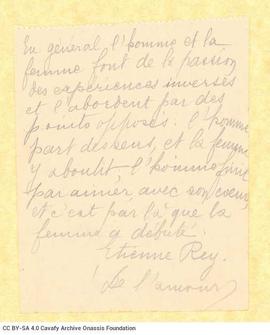 En général l'homme et la
femme font de la passion
des expériences inverses
et l'abordent par des
points opposés : l'homme
part des sens, et la femme
y aboutit, l'homme finit
par aimer avec son coeur,
et c'est par là que la
femme a débuté.
Etienne Rey.
De l'amour
CC BY-SA 4.0 Cavafy Archive Onassis Foundation